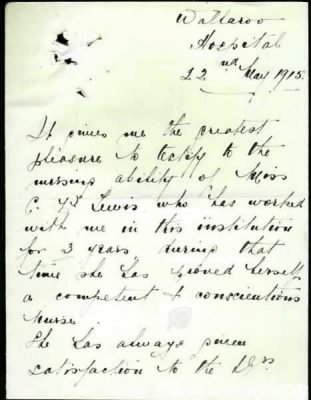 Wallaroo
Hospital
22nd May 1915.
It gives me the greatest
pleasure to testify to the
nursing ability of Miss
C. Lewis who has worked
with me in this institution
for 3 years during that
time she has proved herself
a competent & conscientious
nurse.
She has always given
satisfaction to the Drs